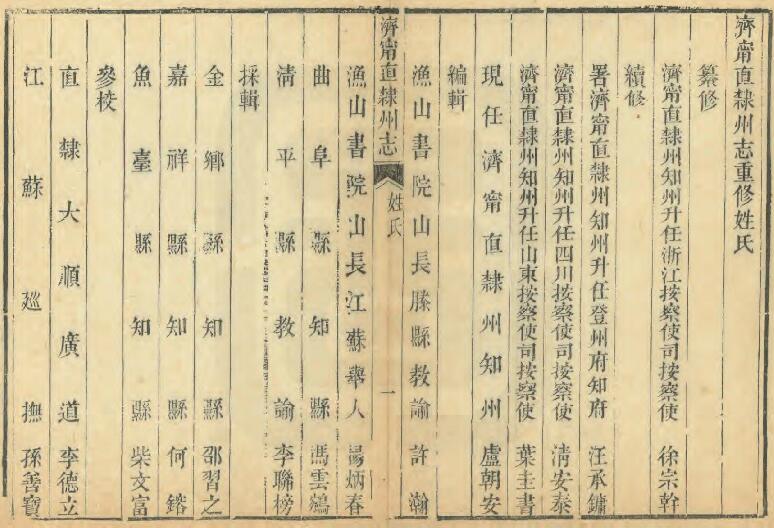 濟甯直隸州志重修姓氏
纂修
濟甯直隸州知州升任浙江按察使司按察使 徐宗幹
續修
署濟甯直隸州知州升任登州府知府 汪承鏞
濟甯直隸州知州升任四川按察使司按察使 清安泰
濟甯直隸州知州升任山東按察使司按察使 葉圭書
現任濟甯直隸州知州 盧朝安
編輯
漁山書院山長滕縣教諭 許瀚
濟甯直隸州志 姓氏 一
漁山書院山長江蘇舉人 楊炳春
曲阜縣知縣 馮雲鵷
清平縣教諭 李聯榜
採輯
金鄉縣知縣 邵習之
嘉祥縣知縣 何鎔
魚臺縣知縣 柴文富
參校
直隸大順廣道 李德立
江蘇巡撫 孫善寶